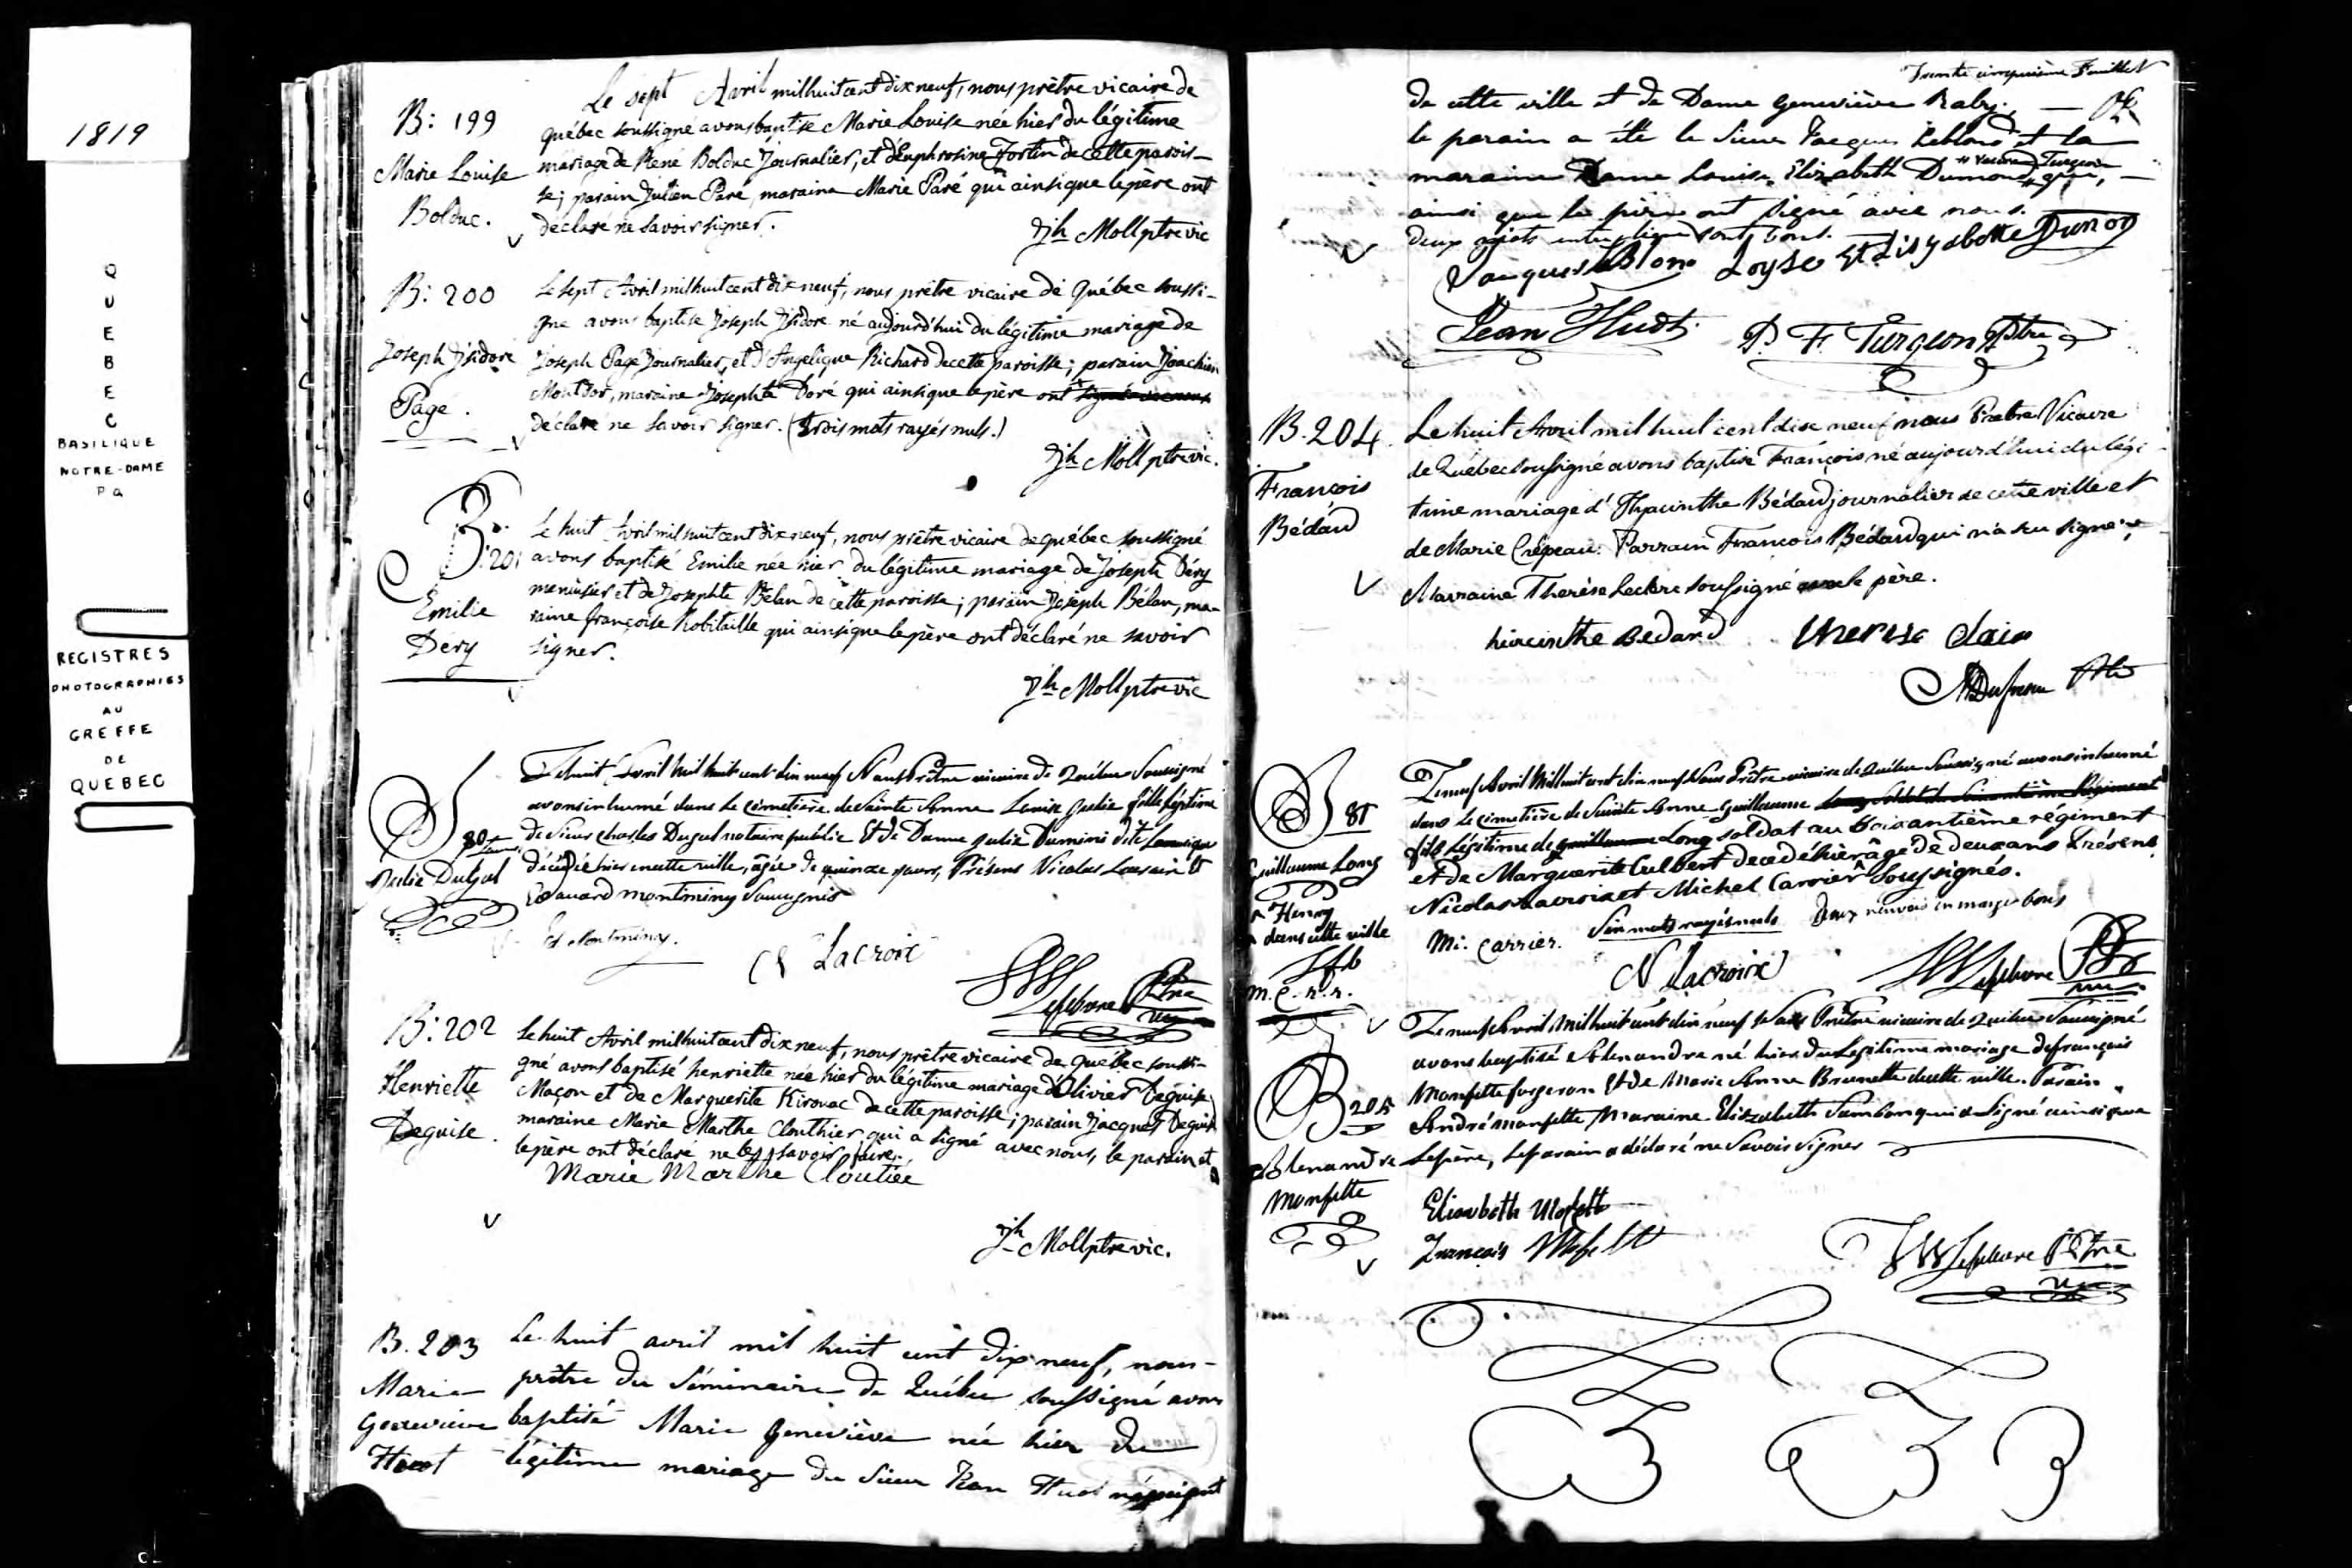 1819
QUEBEC
BASILIQUE
NOTRE-DAME
PQ
REGISTRES
PHOTOGRAPHIES
AU
GREFFE
DE
QUEBEC
B: 199
Marie Louise
Bolduc.
Le sept Avril mil huit cent dix neuf, nous prêtre vicaire de
québec soussigné avons baptisé Marie Louise née hier du légitime
mariage de René Bolduc Journalier, et d'Euphrosine Fortin de cette parois-
se; parain Julien Paré, maraine Marie Paré qui ainsi que le père ont
déclaré ne savoir signer.
Jh Moll ptre vic
B: 200
Joseph Isidore
Pagé.
Le sept Avril mil huit cent dix neuf, nous prêtre vicaire de Québec soussi-
gné avons baptisé Joseph Isidore né aujourd'hui du légitime mariage de
Joseph Pagé Journalier, et d'Angelique Richard de cette paroisse; parain Joachim
Montdor, maraine Josephte Doré qui ainsi que le père ont signé avec nous
déclaré ne savoir signer. (trois mots rayés nuls.)
Jh Moll ptre vic.
B: 201
Emilie
Dery
Le huit Avril mil huit cent dix neuf, nous prêtre vicaire de québec soussigné
avons baptisé Emilie née hier du légitime mariage de Joseph Déry
menuisier et de Josephte Bélan de cette paroisse; parain Joseph Bélan, ma-
raine françoise Robitaille qui ainsi que le père ont déclaré ne savoir
signer.
Jh Moll ptre vic
S 80
Julie Dugal
Le huit Avril mil huit cent dix neuf Nous Prêtre vicaire de Québec Soussigné
avons inhumé dans le cimetière de Sainte Anne Louise Julie fille légitime
de Sieur Charles Dugal notaire public Et de Dame Julie
décédée hier en cette ville, agée de quinze jours, Présens Nicolas Et
Edouard montminy Soussignés
Ed Montminy.
Lacroix
Lefebvre Ptre
B: 202
Henriette
Deguise.
Le huit Avril mil huit cent dix neuf, nous prêtre vicaire de Québec soussi-
gné avons baptisé henriette née hier du légitime mariage d'Olivier Deguise
Maçon et de Marguerite Kirouac de cette paroisse; parain Jacques Deguise
maraine Marie Marthe Clouthier qui a signé avec nous, le parain et
le père ont déclaré ne le savoir faire.
Marie Marthe Cloutier
Jh Moll ptre vic.
B. 203
Marie
Genevieve
Huot
Le huit avril mil huit cent dix neuf, nous
prêtre du Séminaire de Québec soussigné avons
baptisé Marie Geneviève née hier du
légitime mariage du Sieur Jean Huot négociant
Trente cinquième Feuillet
de cette ville et de Dame Geneviève Raby;
le parain a été le Sieur Jacques Leblond et la
maraine Dame Louise Elizabeth Dumond # qui,
# Veuve Turgeon
ainsi que le père ont signé avec nous.
deux mots interlignés sont bons.
Jacques LeBlond Loyse Elisabette Dumon
Jean Huot P. F. Turgeon Ptre
B. 204
François
Bédard
Le huit Avril mil huit cent dix neuf nous Prêtre Vicaire
de Québec soussigné avons baptisé François né aujourd'hui du légi-
time mariage d'Hyacinthe Bédard journalier de cette ville et
de Marie Crépeau. Parrain François Bédard qui n'a seu signer,
Marraine Therèse Leclerc soussigné avec le père.
hiacinthe Bedard therese clair
Dufresne Ptre
S 81
Guillaume Long
^ Henry
^ dans cette ville
m. C. n. r.
Le neuf Avril Mil huit cent dix neuf Nous Prêtre vicaire de Québec Soussigné avons inhumé
dans le cimetière de Sainte Anne Guillaume Long Soldat du Soixantième Régiment
fils Légitime de Guillaume Long soldat au soixantième régiment
et de Marguerite Culbert decedé hier ^ âgé de deux ans Présens
Nicolas Lacroix et Michel Carrier Soussignés.
Mi. Carrier. Six mots rayés nuls Deux renvois en marge bons
N Lacroix Lefebvre Ptre
B 205
Alexandre
Monfette
Le neuf Avril Mil huit cent dix neuf Nous Prêtre vicaire de Québec Soussigné
avons baptisé Alexandre né hier du Légitime mariage de françois
Monfette forgeron Et de Marie Anne Brunette de cette ville. Parain
André monfette Maraine Elizabeth qui a Signé ainsi que
Le père, Le parain a déclaré ne Savoir Signer
Elisabeth Mofett
Francois Mofett
Lefebvre Ptre